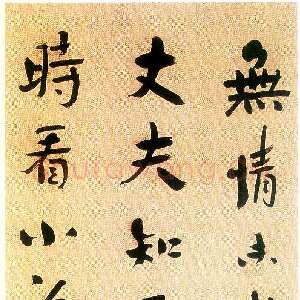 無情未
丈夫知
時看小